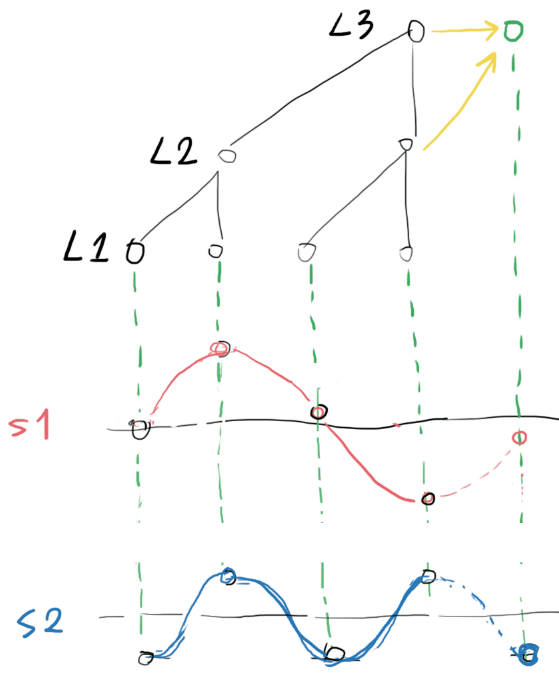 L3
L2
L1
s1
s2